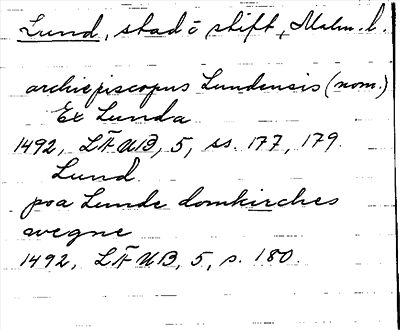 Lund, stad o stift, Malm. l.
archiepiscopus Lundensis (nom.)
Ex Lunda
1492, LÄUB, 5, ss. 177, 179.
Lund.
poa Lunde domkirches
wegne
1492, LÄUB, 5, s. 180.